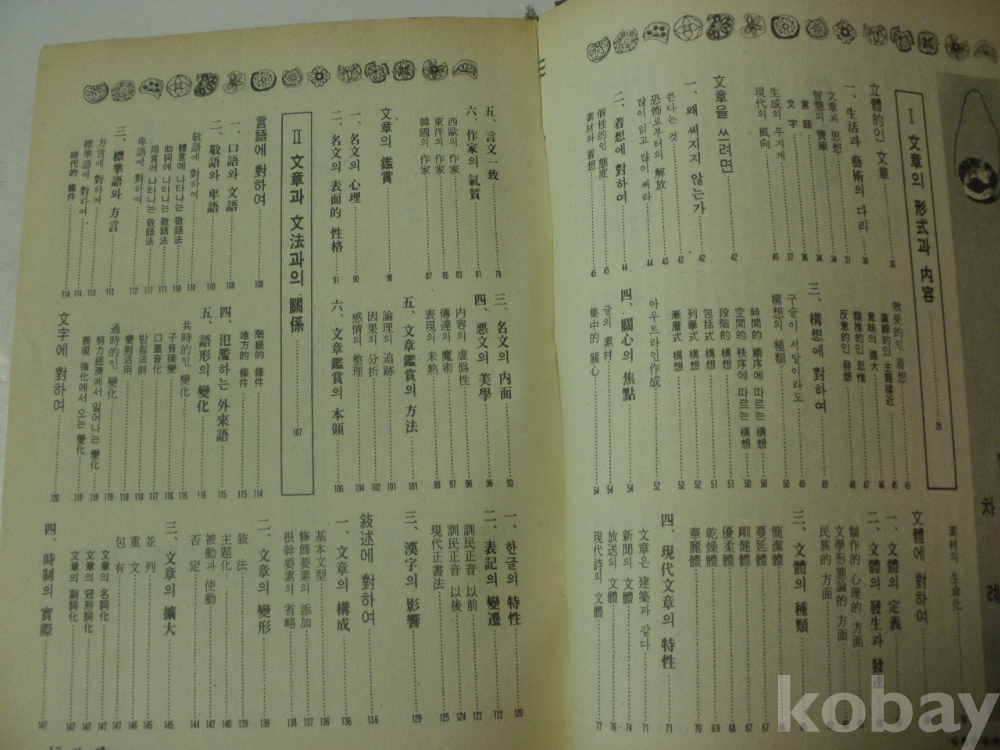 차
I 文章의 形式과 內容 29
立體的인 文章 30
一、生活과 藝術의 다리 31
文章과 思想 34
智慧의 寶庫 34
言語 36
文字 37
生成의 무지개 40
現代의 風向
文章을 쓰려면 42
一、왜 써지지 않는가 42
쓴다는 것 42
恐怖로부터의 解放 43
많이 읽고 많이 써라 44
二、着想에 對하여 44
個性的인 態度 45
素材와 着想 45
效果的인 着想 45
直線的인 主題接近
意味의 擴大
類推的인 思惟 48
反意的인 發想 48
三、構想에 對하여 49
구슬이 서말이라도
構想의 種類 50
時間的 順序에 따르는 構想 50
空間的 秩序에 따르는 構想 50
段階的 構想 51
包括式 構想 51
列擧式 構想 52
漸層式 構想 52
아우트라인作成 52
四、關心의 焦點 54
글의 素材 54
集中的 關心 54
素材의 生命化
文體에 對하여
一、文體의 定義
二、文體의 發生과
制作的·心理的 方面
文學形態論的 方面
民族的 方面
三、文體의 種類
簡潔體
蔓延體
剛健體 67
優柔體 68
乾燥體 69
華麗體 70
四、現代文章의 特性 71
文章은 建築과 같다 71
新聞의 文體 74
放送의 文體 76
現代詩의 文體 77
五、言文一致 78
六、作家의 氣質 81
西歐의 作家 83
東洋의 作家 85
韓國의 作家 87
文章의 鑑賞 90
一、名文의 心理 90
二、名文의 表面的 性格 91
三、名文의 內面 93
四、惡文의 美學 96
內容의 虛僞性 96
傳達의 魔術 97
表現의 未熟 99
五、文章鑑賞의 方法 101
論理의 追跡 101
因果의 分折 102
感情의 整理 104
六、文章鑑賞의 本領 106
II 文章과 文法과의 關係 107
言語에 對하여 108
一、口語와 文語 108
二、敬語와 卑語 109
敬語에 對하여 110
體言에 나타나는 敬語法 110
助詞에 나타나는 敬語法 111
用言에 나타나는 敬語法 111
卑語에 對하여 112
三、標準語와 方言 113
方言에 對하여 113
標準語에 對하여 114
時代的 條件 114
階級的 條件 114
地方的 條件 115
四、氾濫하는 外來語 115
五、語形의 變化 116
共時的인 變化 116
子音接變 116
口蓋音化 117
받침法則 118
變則活用 118
通時的인 變化 119
努力經濟에서 일어나는 變化 119
表現 强化에서 오는 變化 119
文字에 對하여 120
一、한글의 特性 120
二、表記의 變遷 122
訓民正音 以前 122
訓民正音 以後 124
現代正書法 125
三、漢字의 影響 129
敍述에 對하여 136
一、文章의 構成 136
基本文型 136
修飾要素의 添加 137
根幹要素의 省略 138
二、文章의 變形 139
敍法 139
主題化 140
被動과 使動 142
否定 144
三、文章의 擴大 145
並列 145
重文 146
包有 147
文章의 名詞化 147
文章의 冠形詞化 147
文章의 副詞化 147
四、時制의 實際 147
kobay